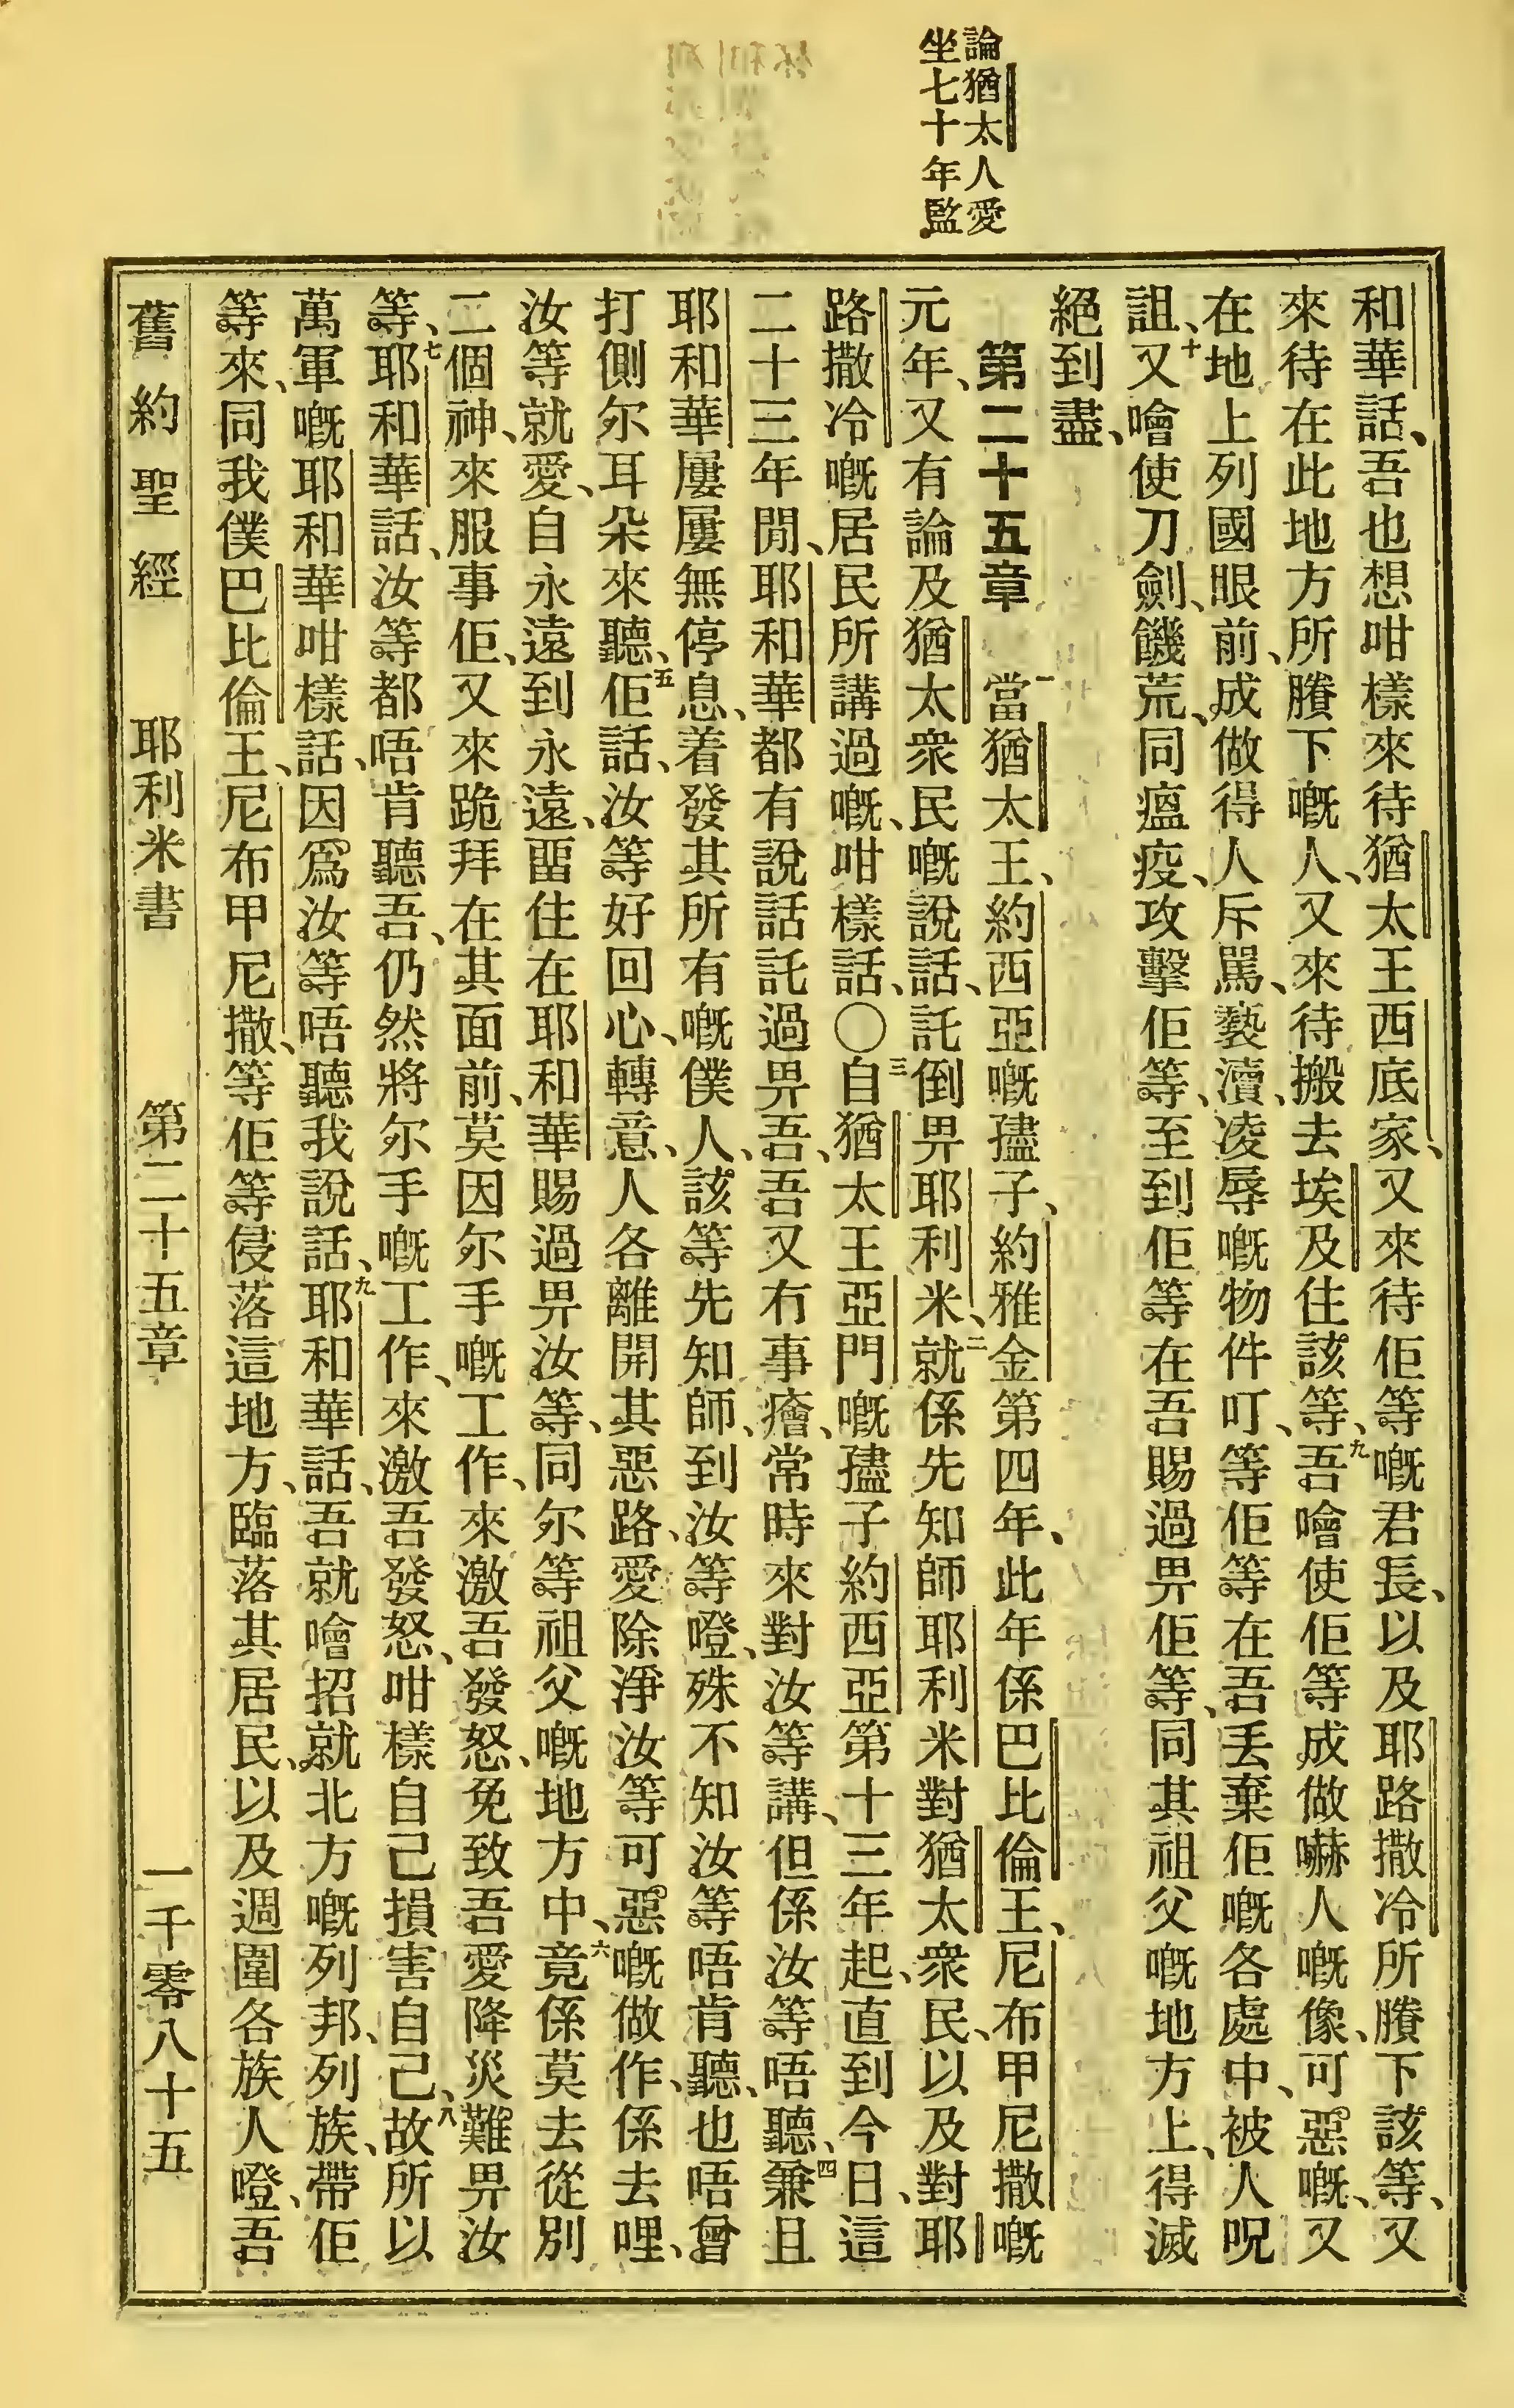 論猶太人愛
坐七十年監
和華話、吾也想咁樣來待猶太王西底家、又來待佢等嘅君長、以及耶路撒冷所賸下該等、又
來待在此地方所賸下嘅人、又來待搬去埃及住該等、九吾噲使佢等成做嚇人嘅像、可惡嘅、又
在地上列國眼前、成做得人斥駡、褻瀆、凌辱嘅物件叮、等佢等在吾丢棄佢嘅各處中、被人呪
詛、十又噲使刀劍、饑荒、同瘟疫、攻擊佢等、至到佢等在吾賜過畀佢等、同其祖父嘅地方上、得滅
絕到盡、
第二十五章 一當猶太王、約西亞嘅孻子、約雅金第四年、此年係巴比倫王、尼布甲尼撒嘅
元年、又有論及猶太衆民嘅說話、託倒畀耶利米、二就係先知師耶利米對猶太衆民、以及對耶
路撒冷嘅居民所講過嘅、咁樣話、〇三自猶太王亞門嘅孻子約西亞第十三年起、直到今日、這
二十三年間、耶和華都有說話託過畀吾、吾又冇事癐、常時來對汝等講、但係汝等唔聽、四兼且
耶和華屢屢無停息、着發其所有嘅僕人、該等先知師、到汝等噔、殊不知汝等唔肯聽、也唔曾
打側尔耳朵來聽、五佢話、汝等好回心、轉意、人各離開其惡路、愛除淨汝等可惡嘅做作、係去哩、
汝等就愛、自永遠到永遠、畱住在耶和華賜過畀汝等、同尔等祖父嘅地方中、六竟係莫去從別
二個神、來服事佢、又來跪拜在其面前、莫因尔手嘅工作、來激吾發怒、免致吾愛降災難畀汝
等、七耶和華話、汝等都唔肯聽吾、仍然將尔手嘅工作、來激吾發怒、咁樣自己損害自己、八故所以
萬軍嘅耶和華咁樣話、因爲汝等唔聽我說話、九耶和華話、吾就噲招就北方嘅列邦、列族、帶佢
等來、同我僕巴比倫王、尼布甲尼撒、等佢等侵落這地方、臨落其居民、以及週圍各族人噔、吾
舊約聖經 耶利米書 第二十五章 一千零八十五